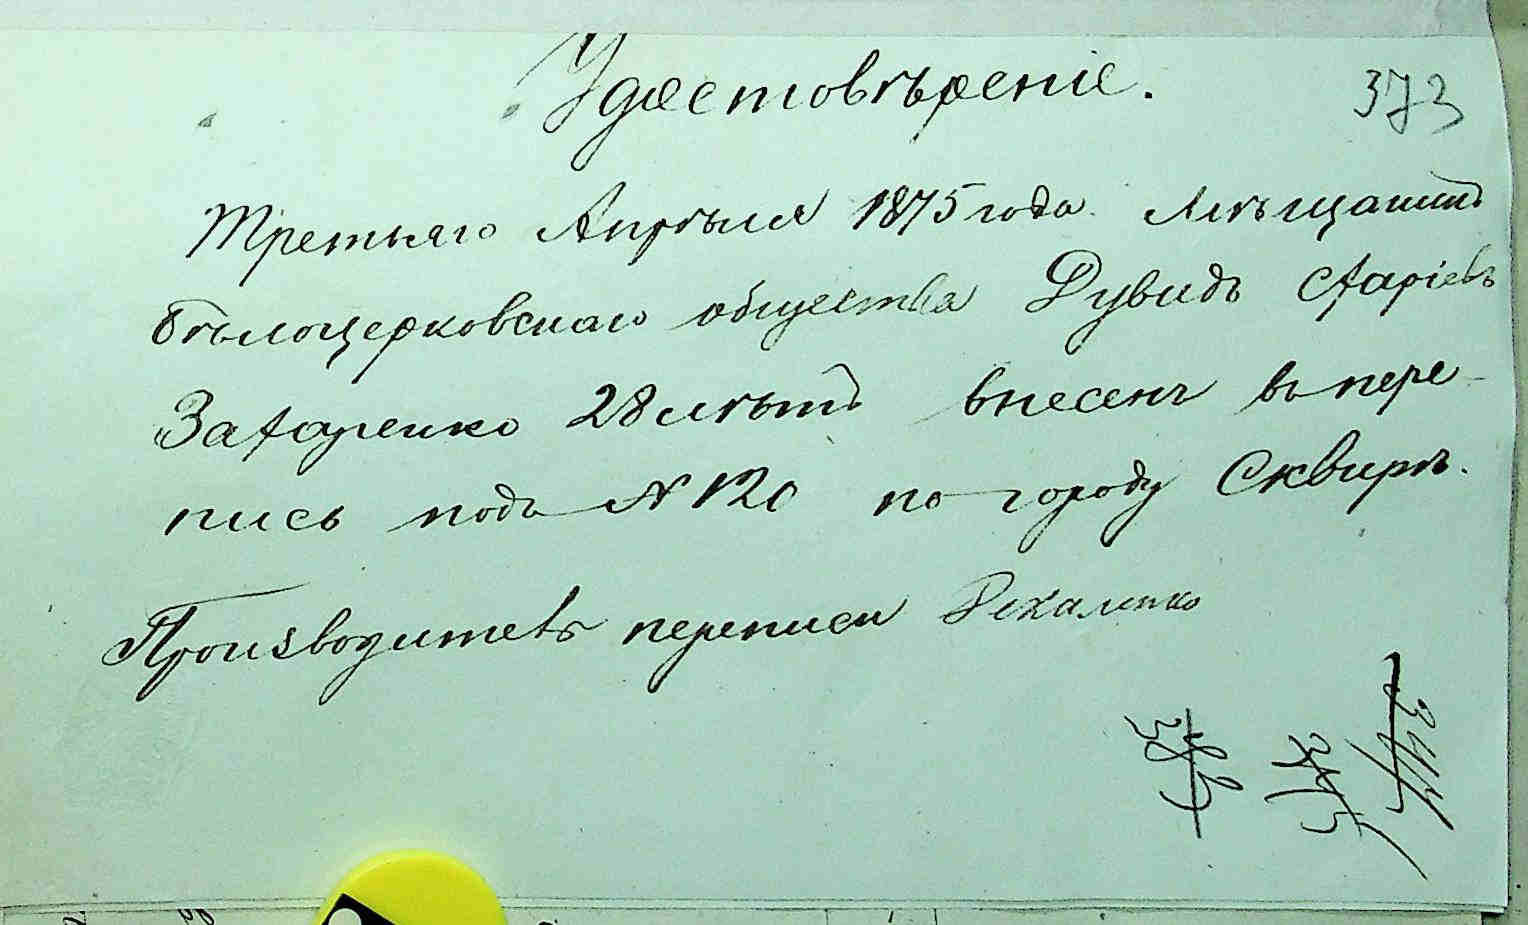 Удостовѣреніе.
373
Третьяго Апрѣля 1875 года Мѣщанинъ
бѣлоцерковскаго общества Дувидъ Ааріевъ
Захаренко 28 лѣтъ внесенъ въ пере-
пись подъ № 120 по городу Сквирѣ.
Производитель переписи
383